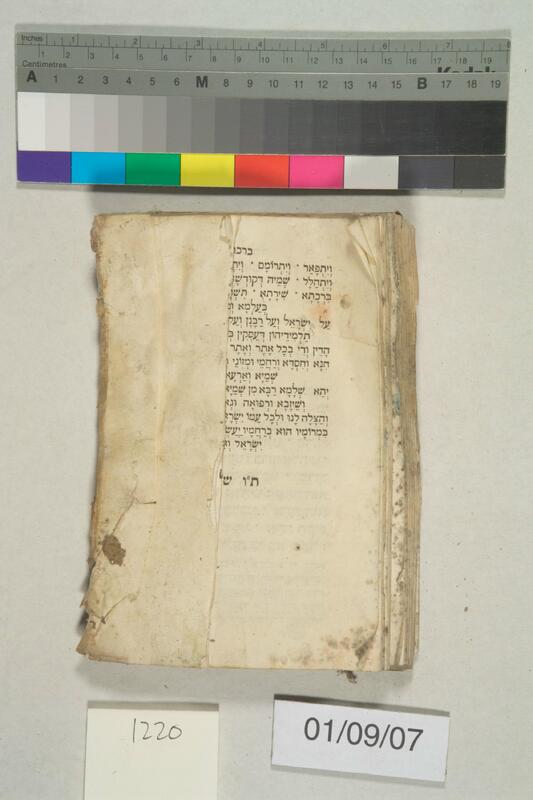 Inches 1 2 3 4 5 6 7 8
Centimetres 1 2 3 4 5 6 7 8 9 10 11 12 13 14 15 16 17 18 19
Kodak
A 1 2 3 4 5 6 M 8 9 10 11 12 13 14 15 B 17 18 19
ברכו
וְיִתְפָּאַר · וְיִתְרוֹמַם · וְיִתְ
וְיִתְהַלָּל שְׁמֵיהּ דְּקוּדְשָׁ
בִּרְכָתָא · שִׁירָתָא · תּוּשְׁ
בְּעָלְמָא וְ
עַל יִשְׂרָאֵל וְעַל רַבָּנָן וְעַל
תַלְמִידֵיהוֹן דְּעַסְקִין בְּ
הָדֵין וְדִי בְכָל אֲתָר וַאֲתָר
חִנָּא וְחִסְדָּא וְרַחֲמֵי וּמְזוֹנֵי
שְׁמַיָּא וְאַרְעָא
יְהֵא שְׁלָמָא רַבָּא מִן שְׁמַיָּא
וְשֵׁיזָבָא וּרְפוּאָה וּגְא
וְהַצָּלָה לָנוּ וּלְכָל עַמּוֹ יִשְׂרָאֵ
בִּמְרוֹמָיו הוּא בְרַחֲמָיו יַעֲשֶׂ
יִשְׂרָאֵל וְאִ
ת"ו ש
1220
01/09/07